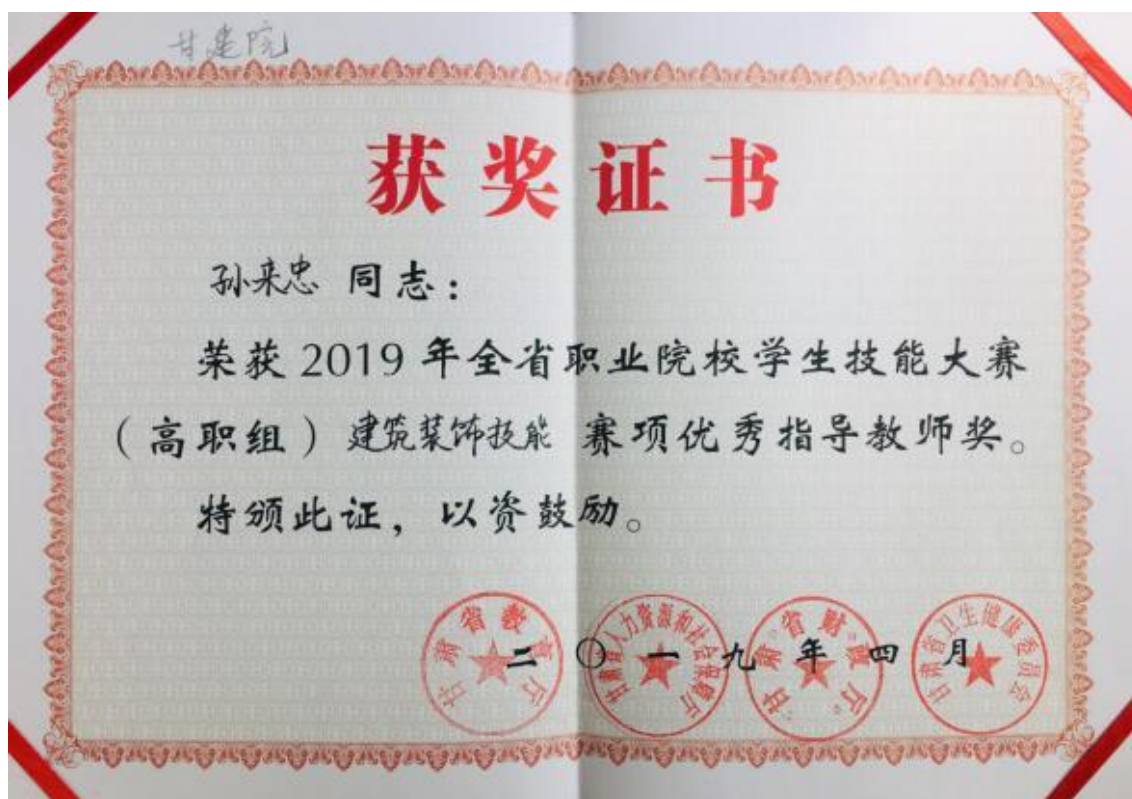 甘建院
获奖证书
孙来忠 同志：
荣获 2019 年全省职业院校学生技能大赛
（高职组）建筑装饰技能 赛项优秀指导教师奖。
特颁此证，以资鼓励。
甘肃省教育厅
甘肃省人力资源和社会保障厅
甘肃省财政厅
甘肃省卫生健康委员会
二〇一九年四月